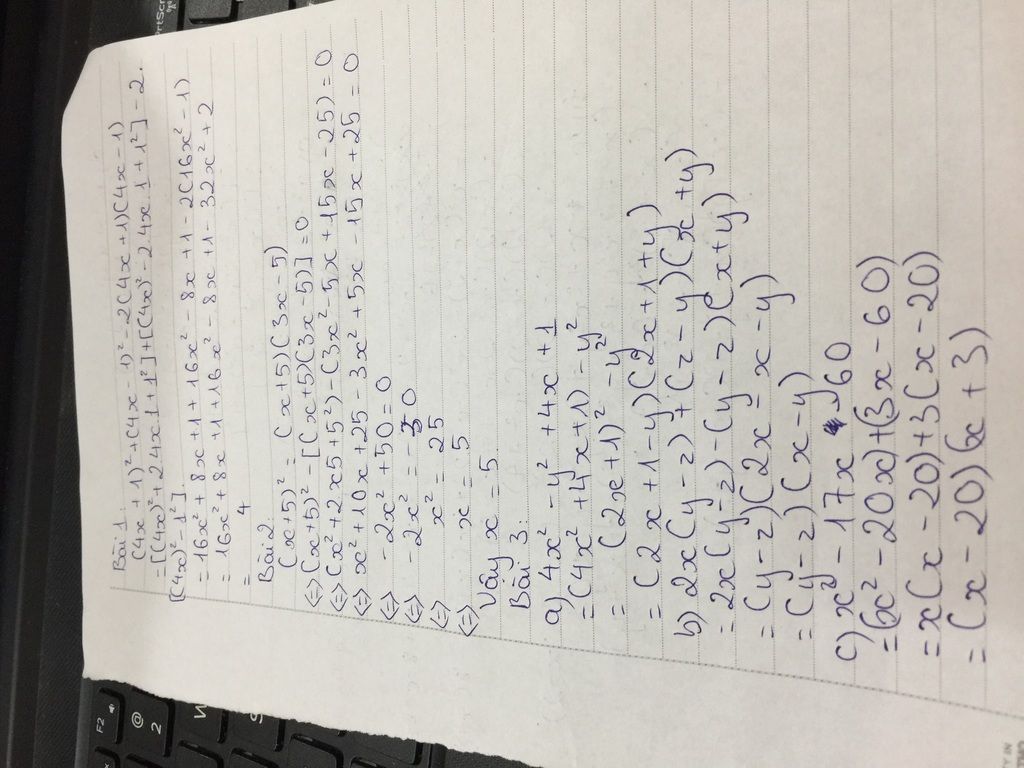 Bài 1:
(4x + 1)² + (4x - 1)² - 2(4x + 1)(4x - 1)
= [(4x)² + 2 4x . 1 + 1²] + [(4x)² - 2 4x . 1 + 1²] - 2.
[(4x)² - 1²].
= 16x² + 8x + 1 + 16x² - 8x + 1 - 2(16x² - 1)
= 16x² + 8x + 1 + 16x² - 8x + 1 - 32x² + 2
= 4
Bài 2:
(x + 5)² = (x + 5)(3x - 5)
<=> (x + 5)² - [(x + 5)(3x - 5)] = 0
<=> (x² + 2 x 5 + 5²) - (3x² - 5x + 15x - 25) = 0
<=> x² + 10x + 25 - 3x² + 5x - 15x + 25 = 0
<=> -2x² + 50 = 0
<=> -2x² = - 0
<=> x² = 25
<=> x = 5
Vậy x = 5
Bài 3:
a) 4x² - y² + 4x + 1
= (4x² + 4x + 1) - y²
= (2x + 1)² - y²
= (2x + 1 - y)(2x + 1 + y)
b) 2x(y - z) + (z - y)(x + y)
= 2x(y - z) - (y - z)(x + y)
= (y - z)(2x - x - y)
= (y - z)(x - y)
c) x² - 17x - 60
= (x² - 20x) + (3x - 60)
= x(x - 20) + 3(x - 20)
= (x - 20)(x + 3)
F2
@
2
W
S
PrtScr